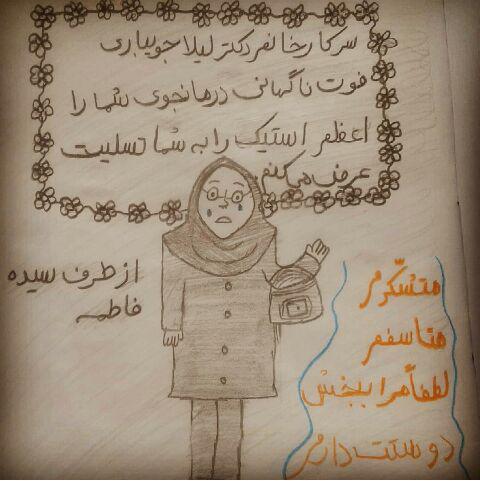 سرکار خانم دکتر لیلا جویباری
فوت ناگهانی درمانجوی شما را
اعظم استیک را به شما تسلیت
عرض میکنم.
از طرف سیده
فاطمه
متشکّرم
متاسفم
لطفاً مرا ببخش
دوستت دارم